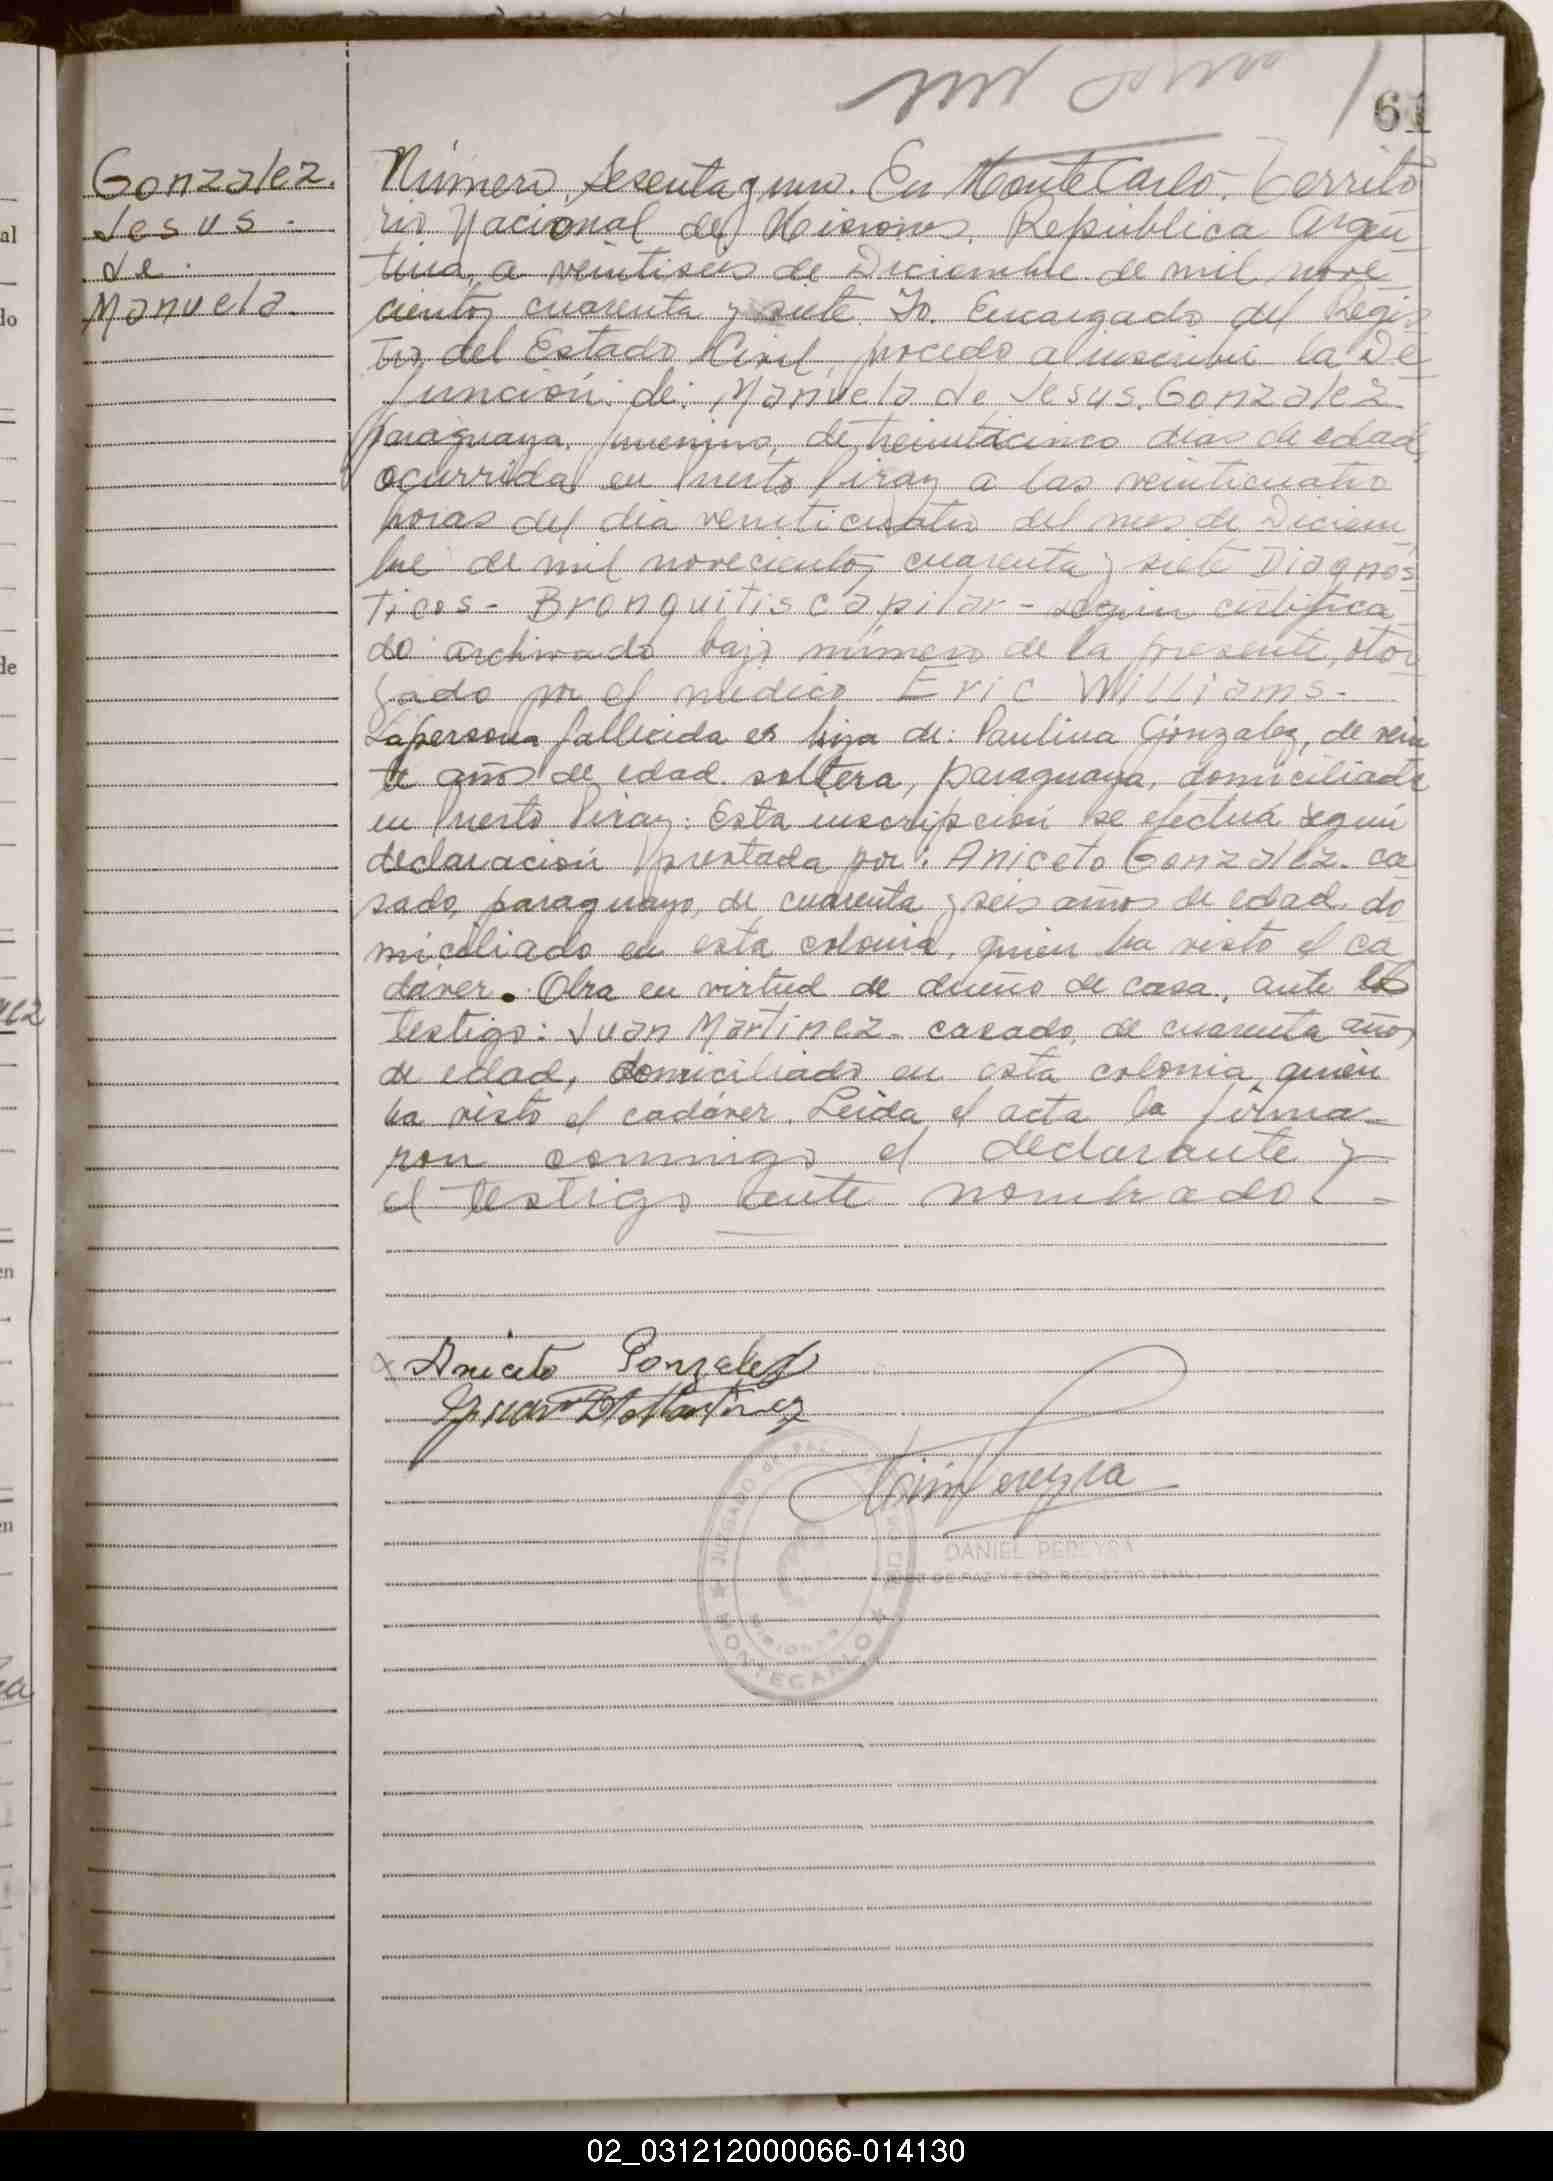 61
Gonzalez.
Jesus.
de.
Manuela.
Número Sesenta y uno. En Monte Carlo. Territo
rio Nacional de Misiones, República Argen
tina, a veintiseis de Diciembre de mil nove
cientos cuarenta y siete Yo. Encargado del Regis
tro del Estado Civil, procedo a inscribir la De
función de: Manuela de Jesus. Gonzalez
paraguaya, de treintacinco dias de edad,
ocurrida en Puerto Piray a las veinticuatro
horas del dia veinticuatro del mes de Diciem
bre de mil novecientos cuarenta y siete Diagnos
ticos - Bronquitis capilar - según certifica
do archivado bajo número de la presente, otor
gado por el médico Eric Williams -
La persona fallecida es hija de: Paulina Gonzalez, de vein
te años de edad. soltera, paraguaya, domiciliada
en Puerto Piray: Esta inscripción se efectuá según
declaración prestada por: Aniceto Gonzalez. ca
sado, paraguayo, de cuarenta y seis años de edad. do
miciliado en esta colonia, quien ha visto el ca
dáver. Obra en virtud de dueño de casa, ante el
testigo: Juan Martinez - casado, de cuarenta años
de edad, domiciliado en esta colonia, quien
ha visto el cadáver. Leida el acta la firma-
ron conmigo el declarante y
el testigo ante nombrado. -
Aniceto Gonzalez
Martinez
Pereyra
DANIEL PEREYRA
JUEZ DE PAZ Y EDO. REGISTRO CIVIL
JUZGADO DE PAZ
MISIONES
MONTECARLO
al
do
de
nez
en
en
02_031212000066-014130